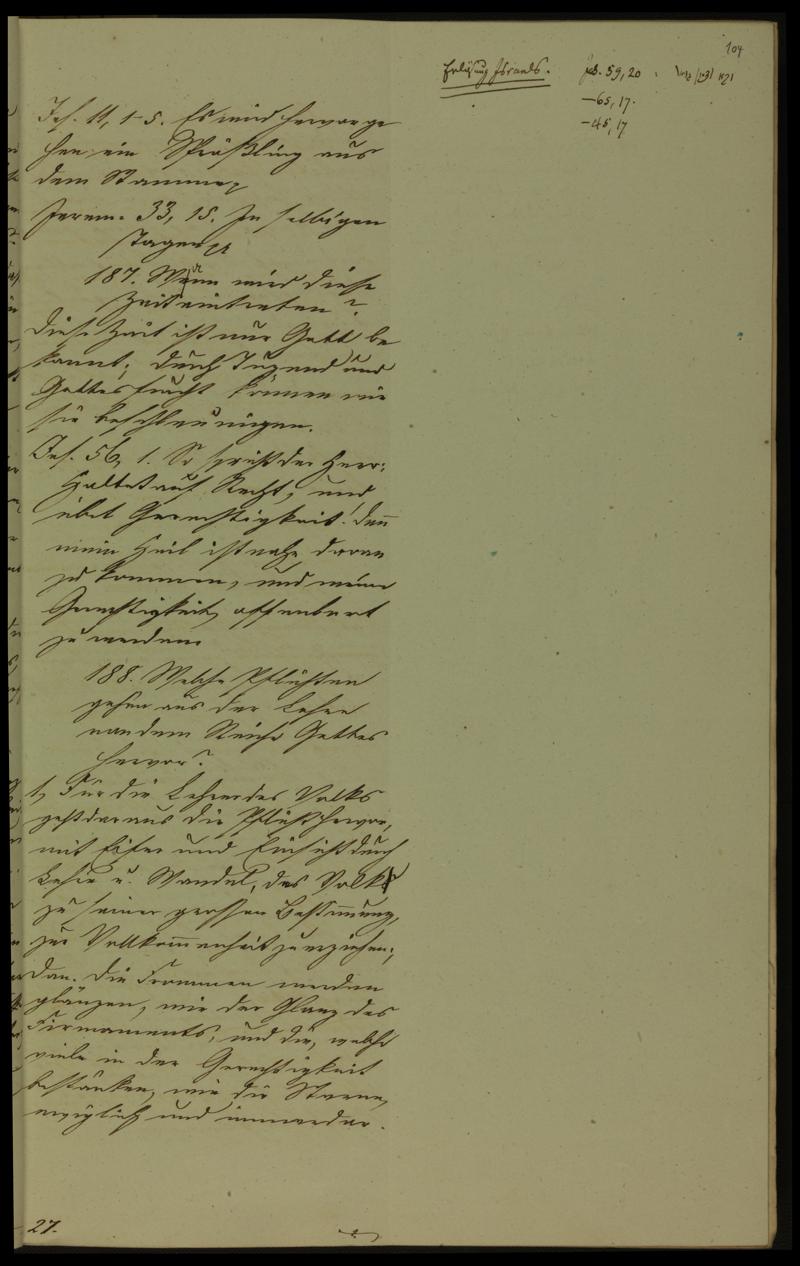 104
Erlösung Israels. Jes. 59, 20
— 65, 17.
— 45, 17
Jes. 11, 1-5. Es wird hervorge
hen ein Sprößling aus
dem Stamme
Jerem. 33, 15. In selbigen
Tagen
187. Wann wird diese
Zeit eintreten?
Diese Zeit ist nur Gott be
kannt; durch Tugend und
Gottesfurcht können wir
sie beschleunigen.
Jes. 56, 1. So spricht der Herr:
Haltet auf Recht, und
übet Gerechtigkeit! deñ
mein Heil ist nahe daran
zu kommen, und meine
Gerechtigkeit, offenbart
zu werden.
188. Welche Pflichten
gehen aus der Lehre
von dem Reiche Gottes
hervor?
1, Für die Lehrer des Volks
geht daraus die Pflicht hervor,
mit Eifer und Einsicht durch
Lehre u. Wandel, das Volk
zu seiner grossen Bestim̄ung,
zur Vollkom̄enheit zu erziehen;
Dan. Die Frommen werden
glänzen, wie der Glanz des
Firmaments, und die, welche
viele in der Gerechtigkeit
bestärken, wie die Sterne,
ewiglich und immerdar.
27.